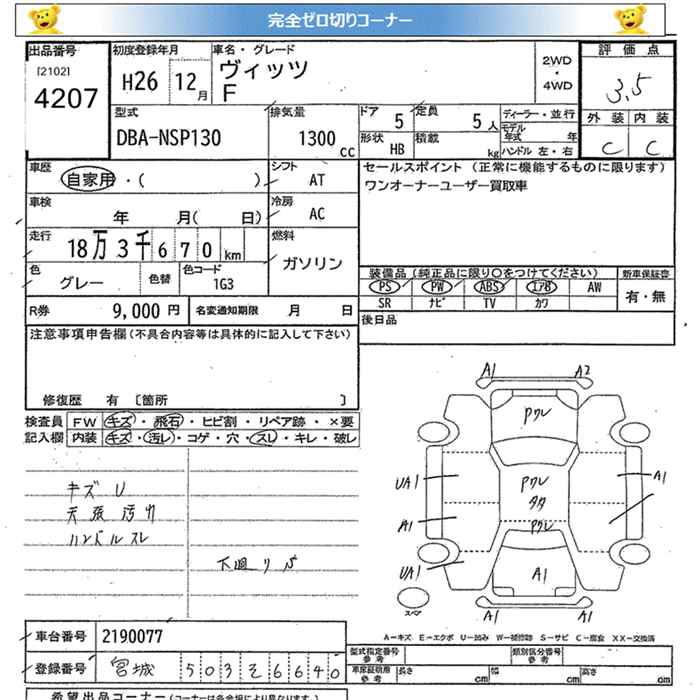 完全ゼロ切りコーナー
出品番号
[2102]
4207
初度登録年月
H26 12月
車名・グレード
ヴィッツ
F
2WD
・
4WD
評価点
3.5
外装 内装
C C
型式
DBA-NSP130
排気量
1300 cc
ドア 5
定員 5人
形状 HB
積載 kg
ディーラー・並行
モデル年式 年
ハンドル 左・右
車歴
自家用・( )
シフト
AT
セールスポイント (正常に機能するものに限ります)
ワンオーナーユーザー買取車
車検
年 月( 日)
冷房
AC
走行
18万3千670km
燃料
ガソリン
色
グレー
色替
色コード
1G3
装備品(純正品に限り○をつけてください)
新車保証書
PS PW ABS エアB AW
有・無
SR ナビ TV カワ
R券 9,000円
名変通知期限 月 日
後日品
注意事項申告欄(不具合内容等は具体的に記入して下さい)
修復歴 有 [箇所 ]
検査員記入欄
FW キズ・飛石・ヒビ割・リペア跡・×要
内装 キズ・汚レ・コゲ・穴・スレ・キレ・破レ
キズ U
天張汚リ
ハンドルスレ
下廻りS
A1 A2
Pクレ
UA1
Pクレ
タタ
A1
A1
Pクレ
UA1
A1
スペア
A1 A1
A-キズ E-エクボ U-凹み W-補修跡 S-サビ C-腐食 XX-交換済
車台番号 2190077
登録番号 宮城 503そ6640
型式指定番号
参考
類別区分番号
参考
車庫証明用
参考
長さ cm
幅 cm
高さ cm
希望出品コーナー(コーナーは各会場により異なります)